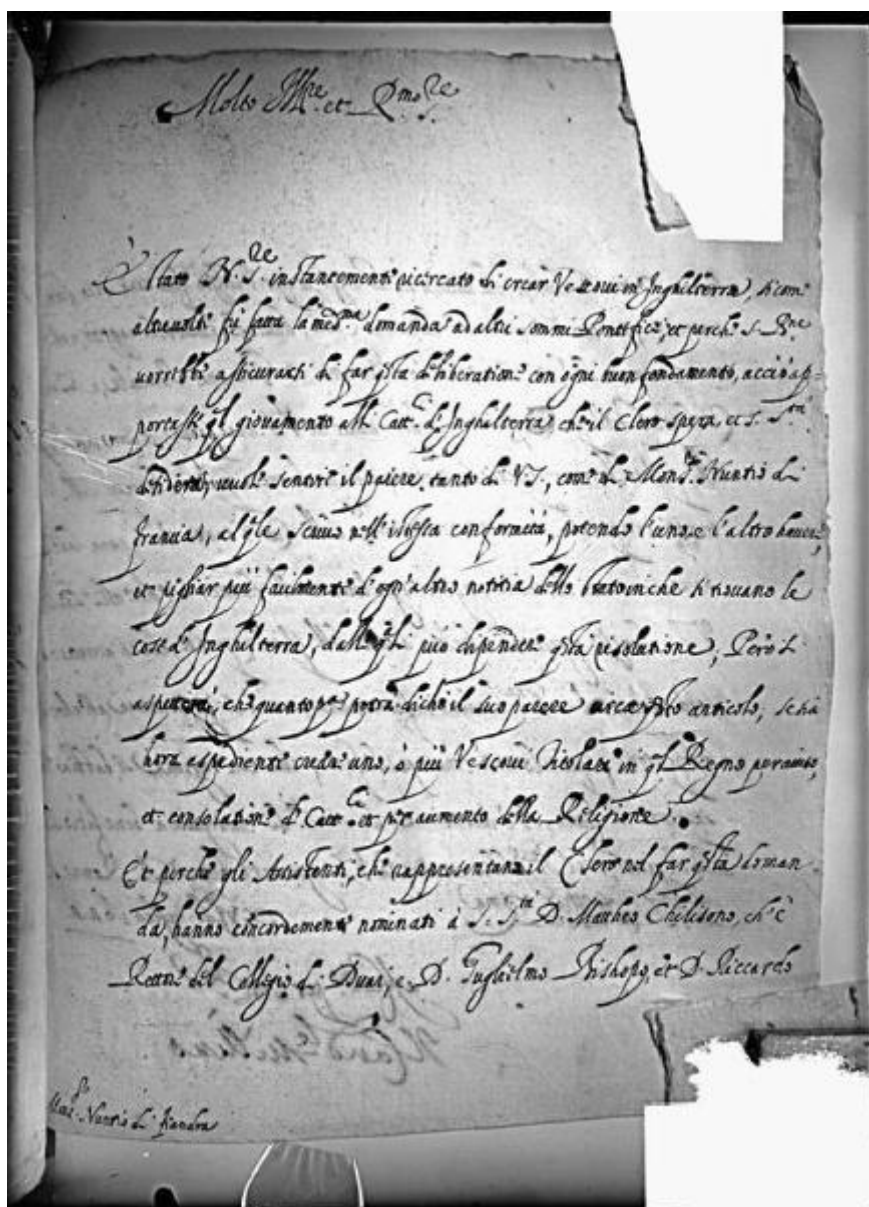 Molto Ill.re et R.mo S.re
È stato N. S.re instantemente ricercato di crear Vescovi in Inghilterra, si come
altrevolte fù fatta la med.ma domanda ad altri sommi Pontefici, et perche S. B.ne
vorrebbe assicurarsi di far q.sta deliberatione con ogni buon fondamento, acciò ap-
portasse q.l giovamento alli Catt.ci d'Inghilterra che il Clero spera, et S. S.tà
desidera, vuole sentire il parere tanto di V.S., come di Mons.r Nuntio di
Francia, al q.le scrivo nell'istessa conformità, potendo l'uno, e l'altro havere,
et pigliar più facilmente d'ogn'altro notitia dello stato in che si trovano le
cose d'Inghilterra, dalle q.li può dipendere q.sta risolutione, Però si
aspetterà, che quanto p.a potrà dichi il suo parere circa q.sto articolo, se sia
hora espediente crear uno, ò più Vescovi Titolari in q.l Regno per aiuto,
et consolatione de Catt.ci et per aumento della Religione.
Et perche gli Assistenti, che rappresentano il Clero nel far q.sta doman
da, hanno concordemente nominati à S. S.tà D. Mattheo Chilisono, ch'è
Rettore del Collegio di Duai, e D. Guglielmo Bishopo, et D. Riccardo
Mons.r Nuntio di Fiandra